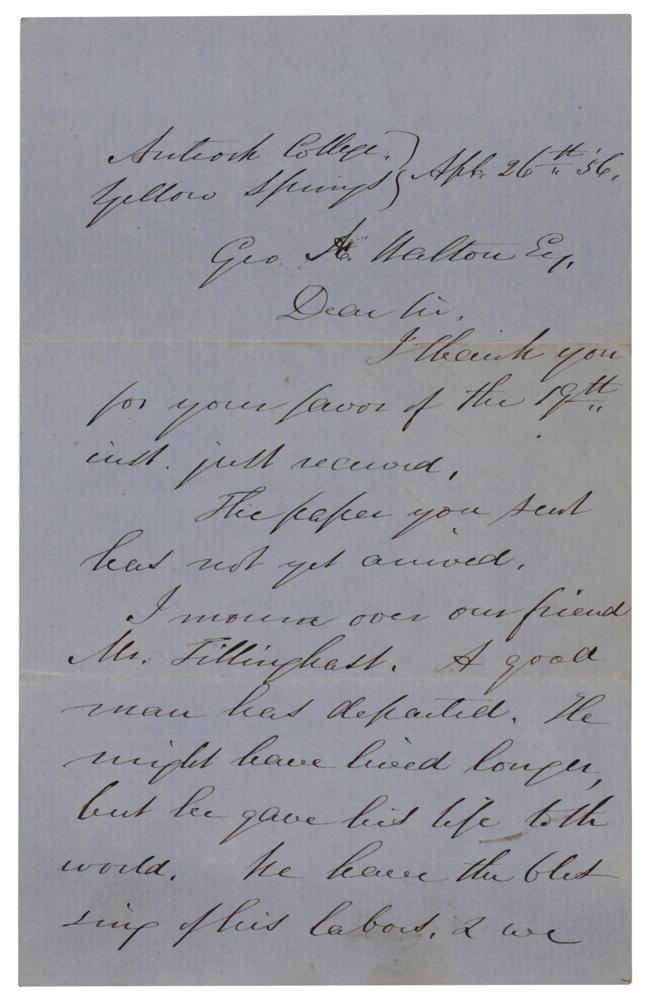 Antioch College,
Yellow Springs } Apl. 26th '56.
Geo. A. Walton Esq.
Dear Sir.
I thank you
for your favor of the 19th
inst. just received.
The paper you sent
has not yet arrived.
I mourn over our friend
Mr. Tillinghast. A good
man has departed. He
might have lived longer,
but he gave his life to th
world. We have the bles
sing of his labors, & we